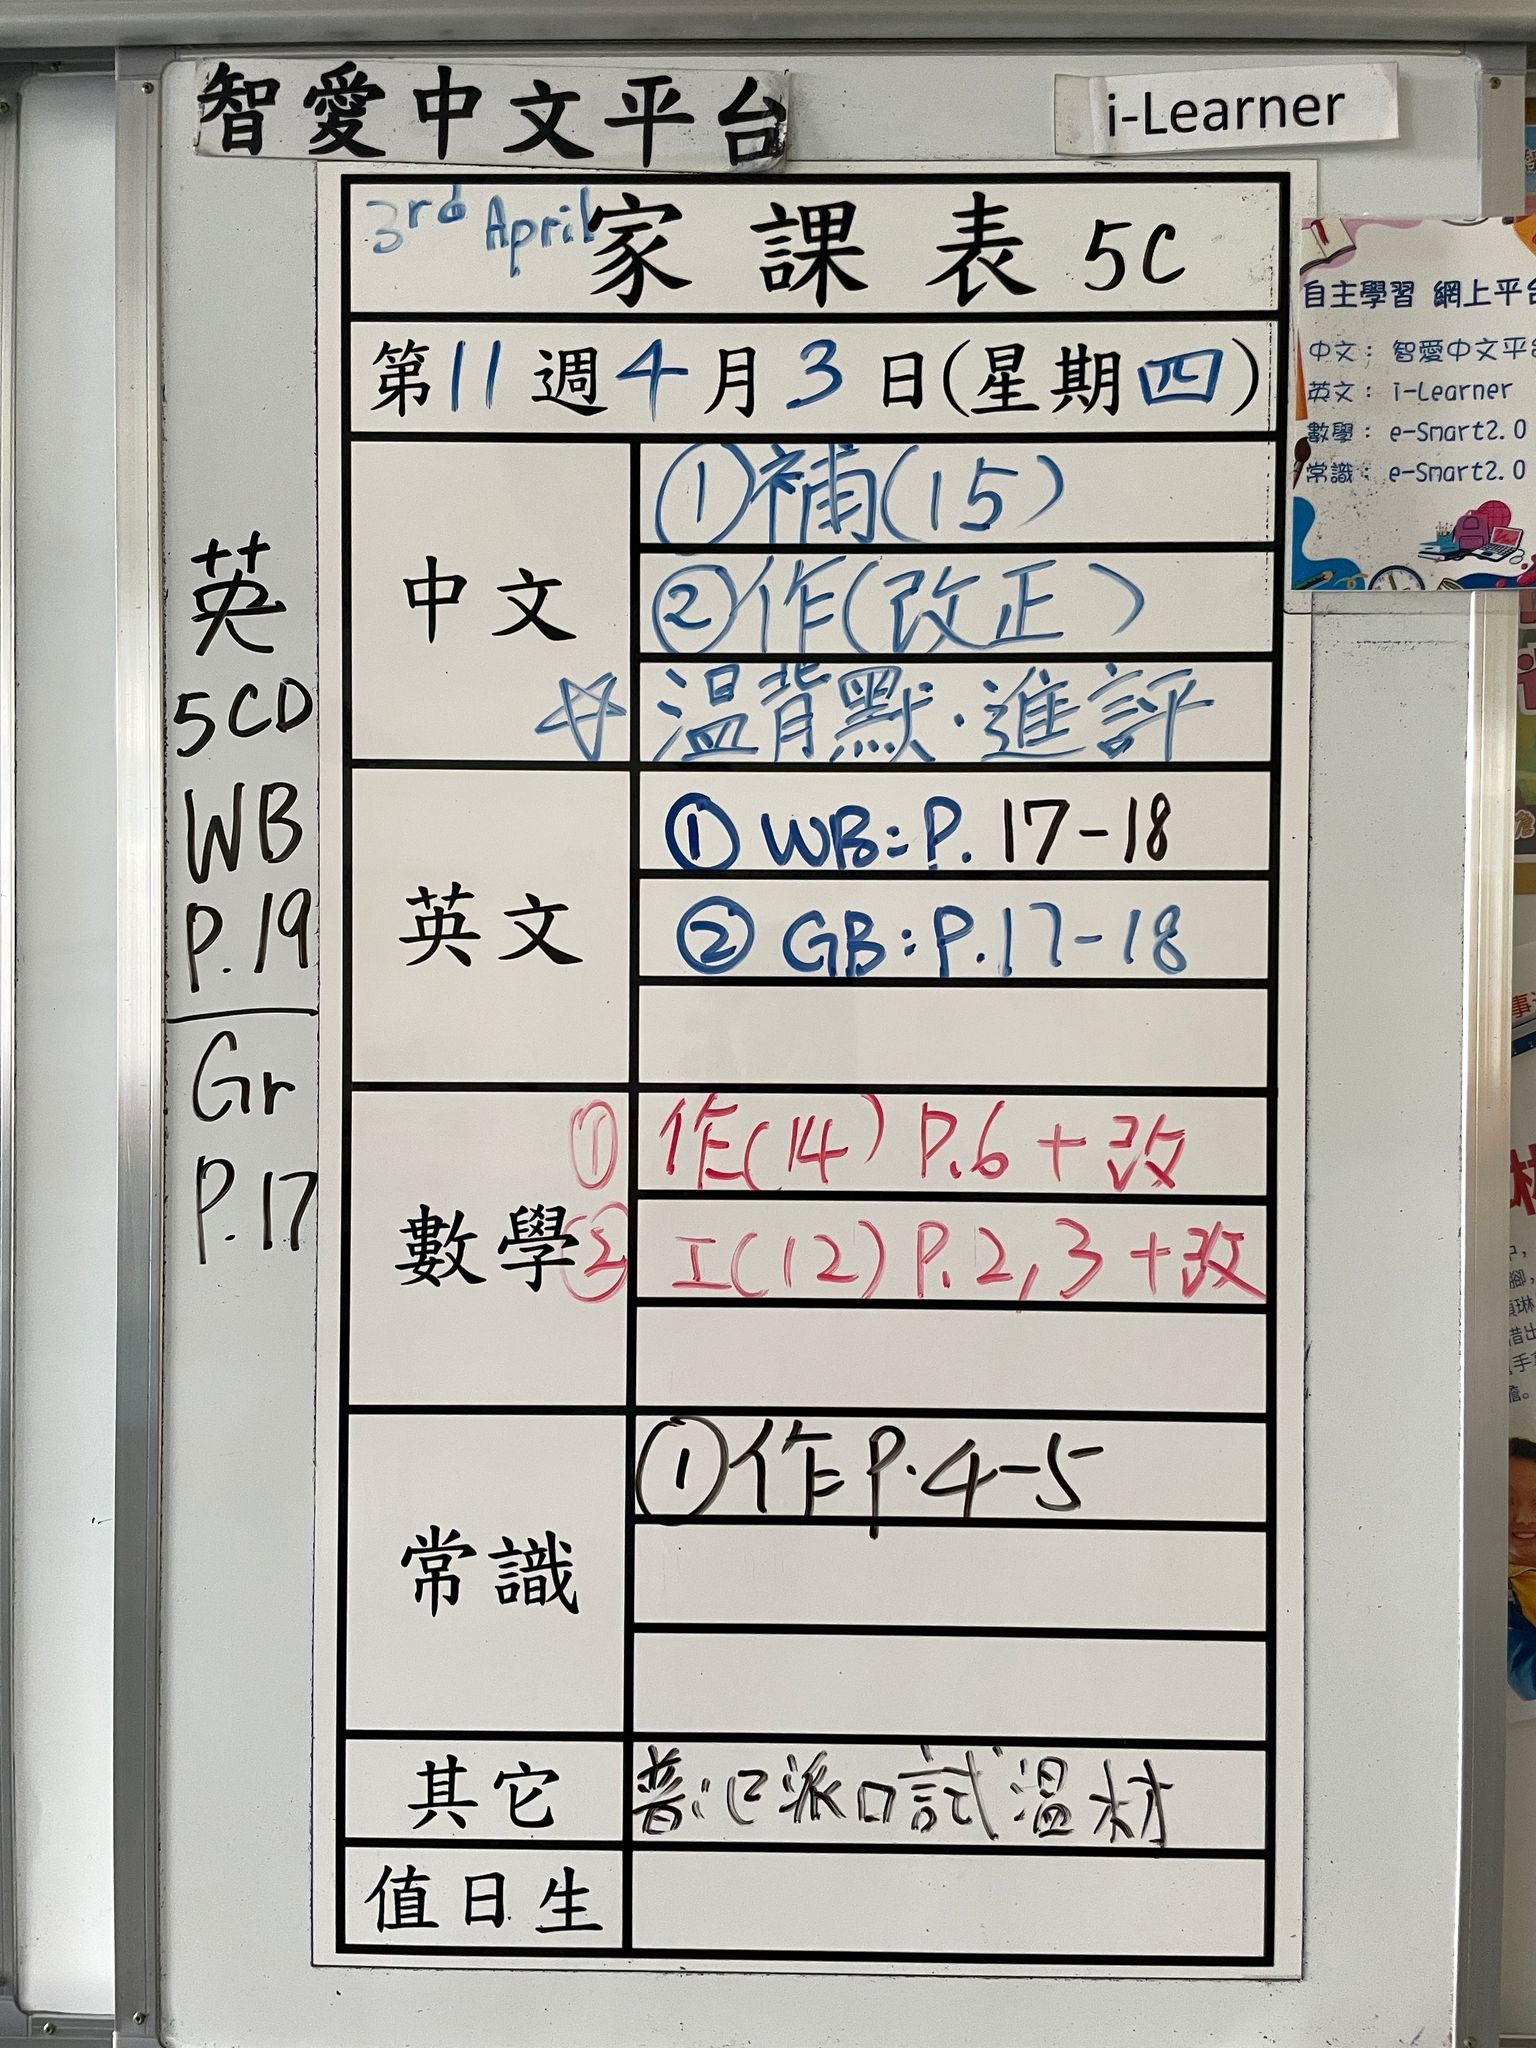 智愛中文平台
i-Learner
3rd April
家課表 5C
第11週4月3日(星期四)
中文
①補(15)
②作(改正)
☆溫背默.進評
英文
① WB:P. 17-18
② GB:P.17-18
數學
① 作(14) P.6 + 改
② 工(12) P.2,3 +改
常識
①作P.4-5
其它
普:已派口試溫材
值日生
英
5CD
WB
P.19
Gr
P.17
自主學習 網上平台
中文: 智愛中文平台
英文: i-Learner
數學: e-Smart2.0
常識: e-Smart2.0